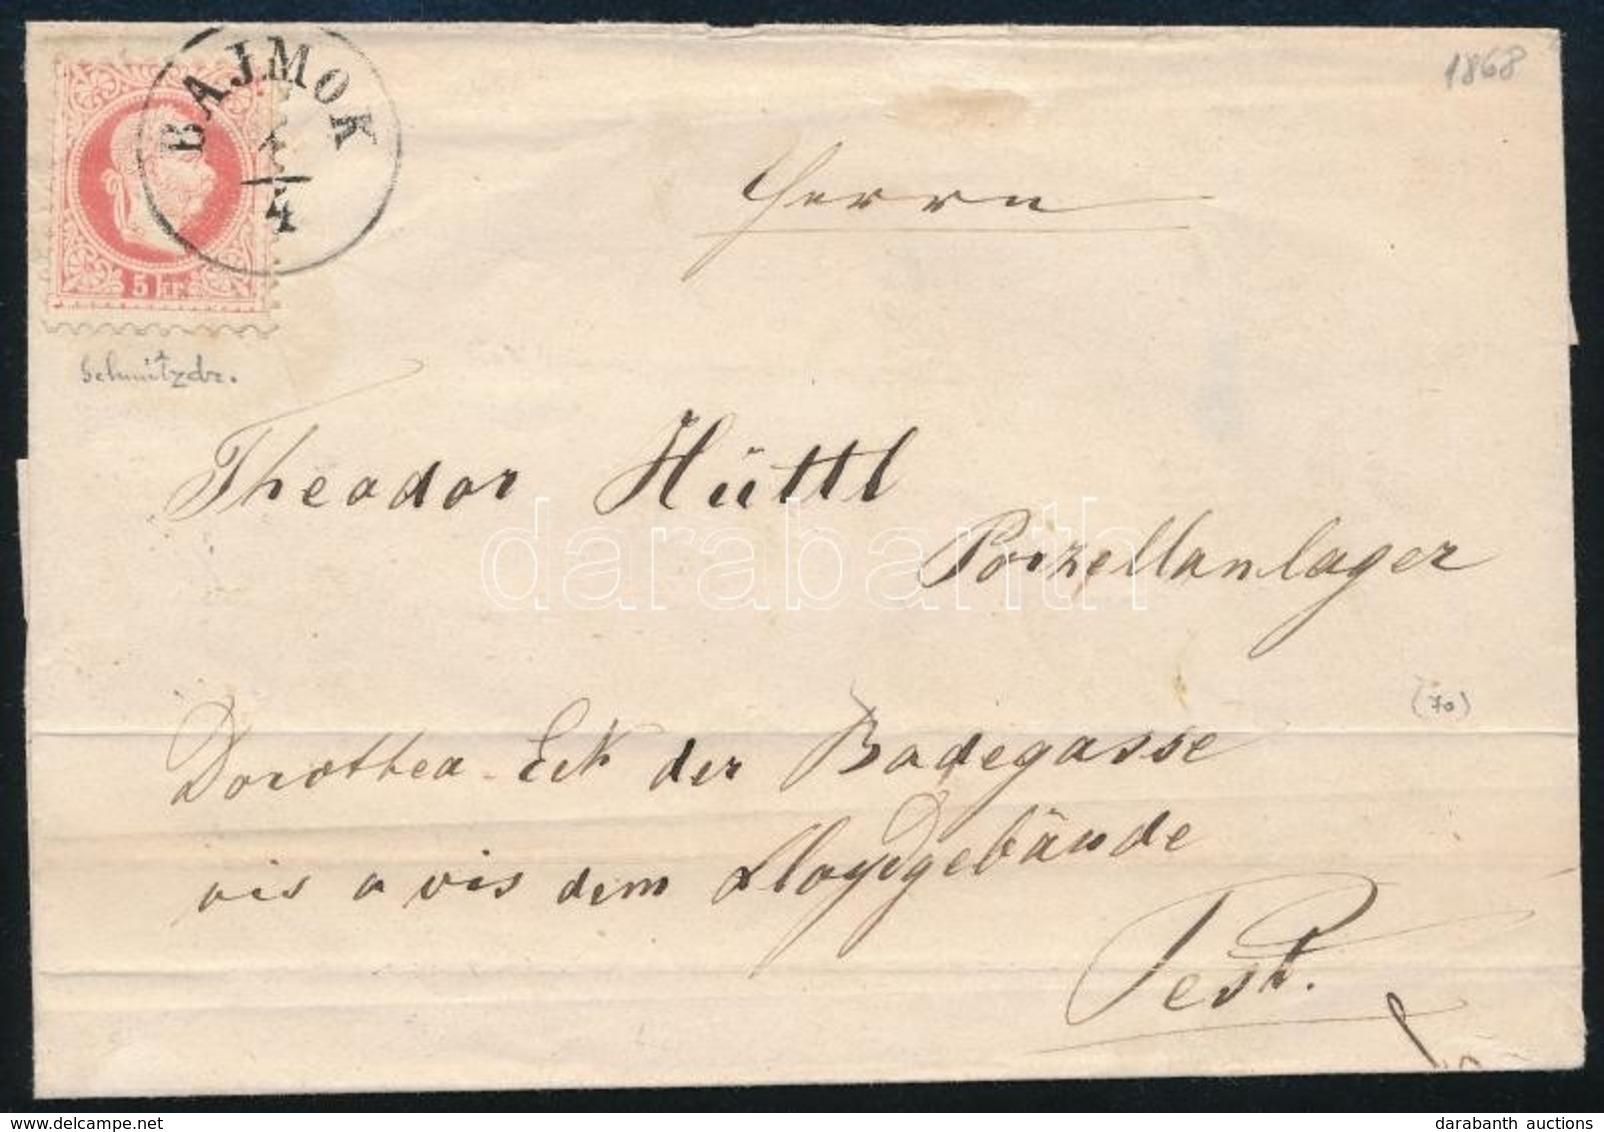 1868
BAJMOK
1/4
5 kr.
Schmitzdr.
Herrn
Theodor Hüttl
darabanth
Porzellanlager
(70)
Dorothea Eck der Badegasse
vis a vis dem Lloydgebäude
Pest.
darabanth auctions